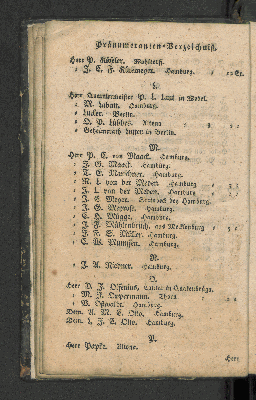 Pränumeranten-Verzeichniß.
Herr P. Köster. Wohltorf.
» J. C. F. Kirchmeyer. Hamburg. » » 12 Ex.
L.
Herr Commerzmeister P. L. Laut in Wedel.
» M. Libatt. Hamburg.
» Lucker. Berlin.
» D. P. Lübbes. Altona » » 2 »
» Geheimrath Lutzen in Berlin.
M.
Herr P. C. von Maack. Hamburg.
» J. G. Maack. Hamburg.
» T. E. Marschner. Hamburg.
» R. L. von der Meden. Hamburg » 3 »
» J. L. von der Meden. Hamburg » 3 »
» J. G. Meyer. bey Hamburg.
» J. G. Meyrose. Hamburg.
» C. H. Mügge. Hamburg.
» J. F. Mühlenbruch, aus Mecklenburg » 3 »
» J. F. S. Müller. Hamburg.
» C. W. Mumsen. Hamburg.
N.
» J. A. Nielmer. Hamburg.
O.
Herr D. J. Olfenius, Cantor in Quakenbrügge.
» M. J. Oppermann. Thorn » » 2 »
» B. Oswaldt. Hamburg.
Dem. A. M. E. Otto. Hamburg.
Dem. L. J. S. Otto. Hamburg.
P.
Herr Papke. Altona.
Herr